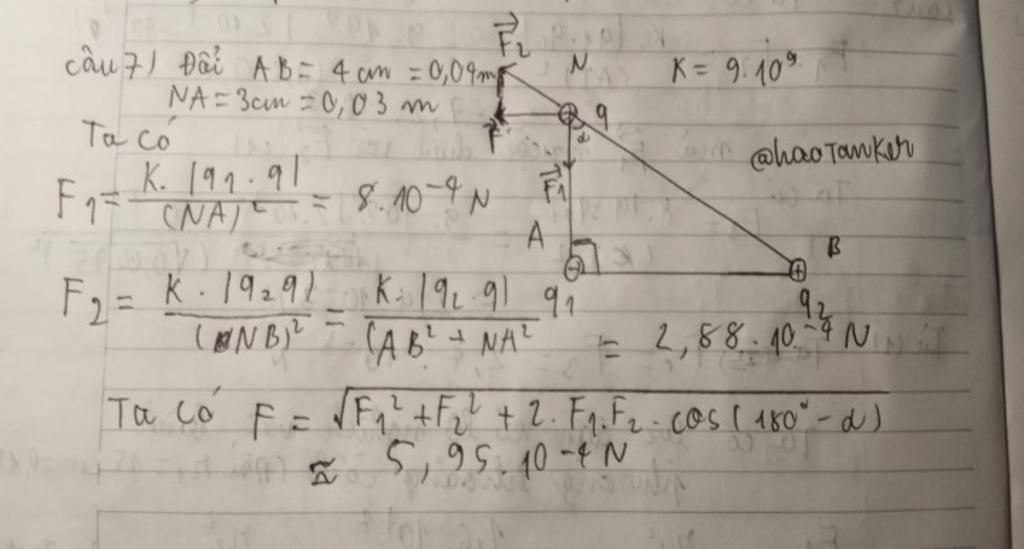 câu 7) Đổi AB = 4 cm = 0,04 m
NA = 3cm = 0,03 m
K = 9.10⁹
Ta có
F₁ = K.|q₁.q| / (NA)² = 8.10⁻⁴ N
F₂ = K.|q₂q| / (NB)² = K.|q₂.q| / (AB² + NA² = 2,88.10⁻⁴ N
Ta có F = √F₁² + F₂² + 2.F₁.F₂.cos(180° - α)
≈ 5,95.10⁻⁴ N
F₂
N
q
α
F
F₁
A
B
q₁
q₂
@haoTanker